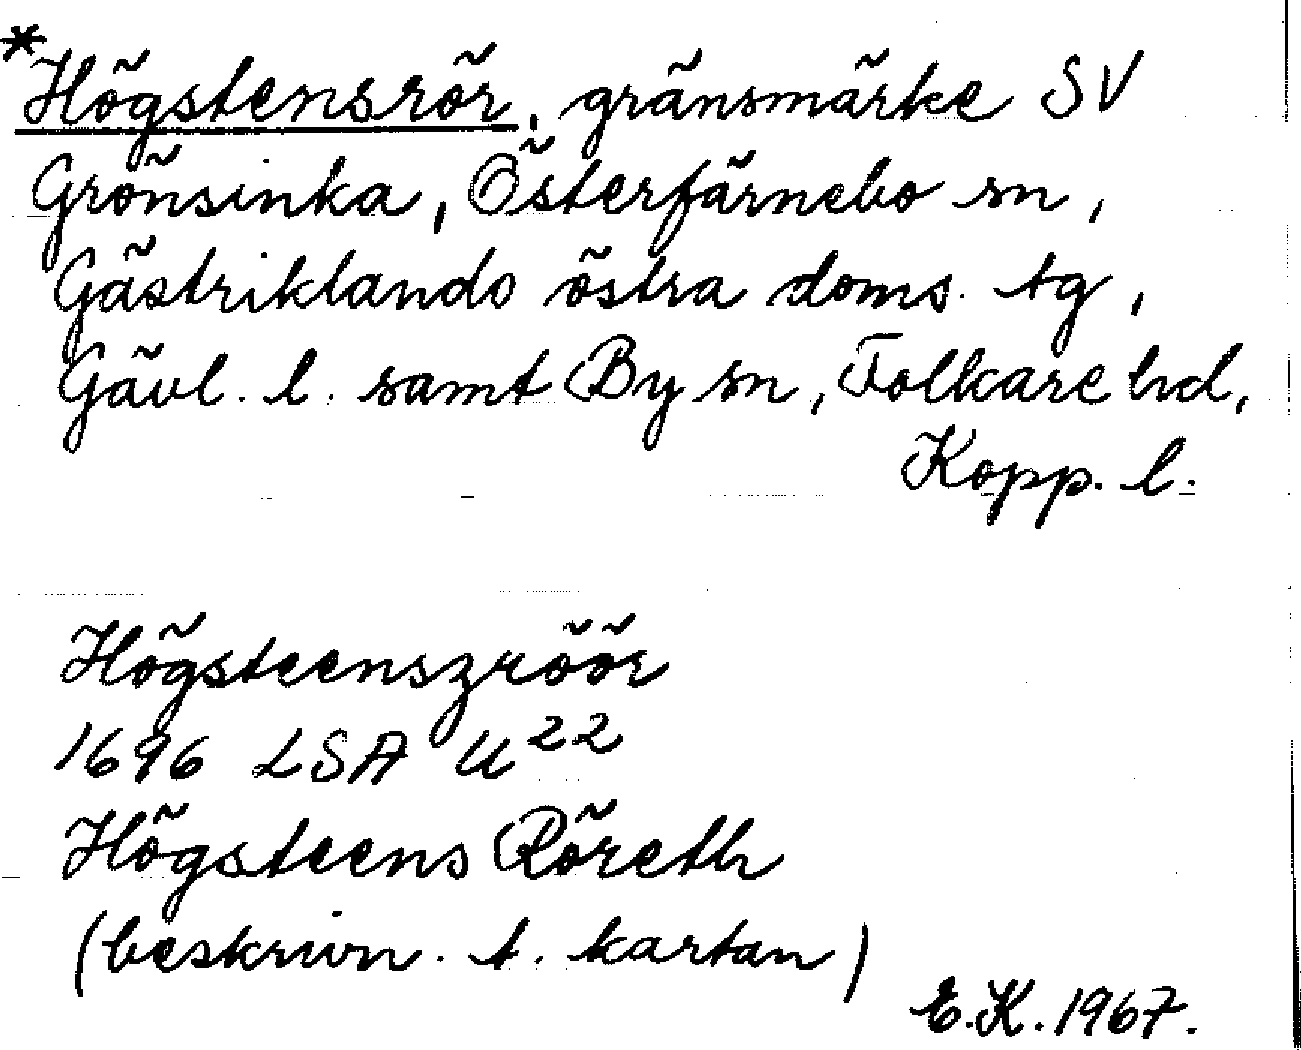 *Högstensrör, gränsmärke SV
Grönsinka, Österfärnebo sn,
Gästriklands östra doms. tg,
Gävl. l. samt By sn, Folkare hd,
Kopp. l.
Högsteenszröör
1696 LSA U22
Högsteens Röreth
(beskrivn. t. kartan)
E.K. 1967.